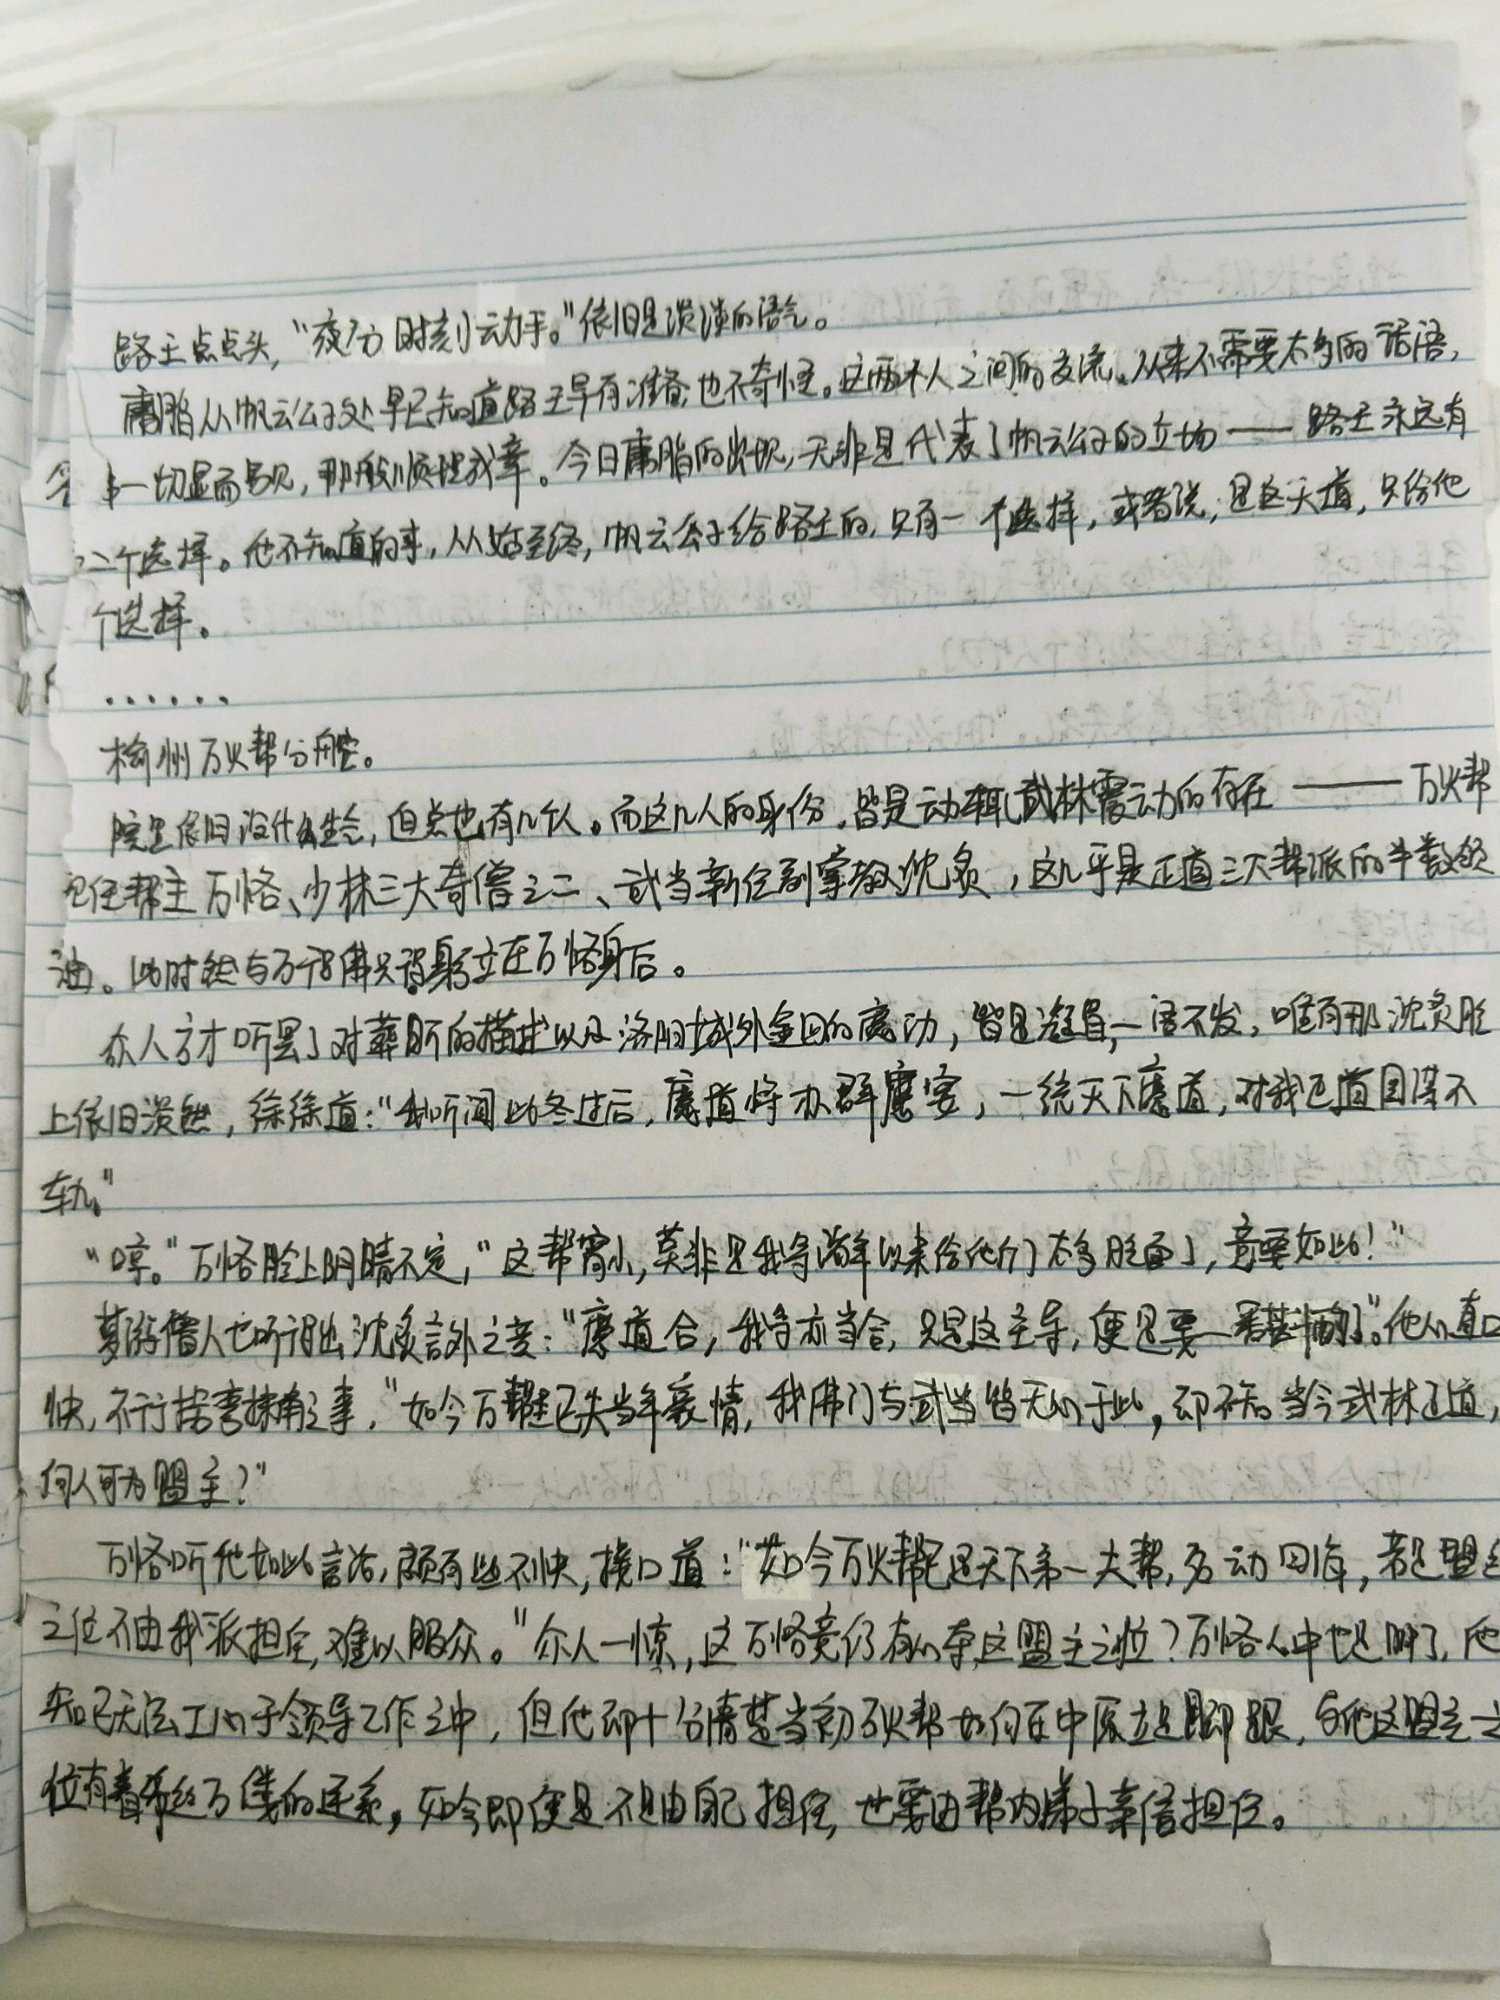 路王点点头，“夜分时刻动手。”依旧是淡淡的语气。
庸脂从帆云公子处早已知道路王早有准备，也不奇怪。这两个人之间的交流，从来不需要太多的话语，
一切显而易见，那般顺理成章。今日庸脂的出现，无非是代表了帆云公子的立场——路王永远有
二个选择。他不知道的事，从始至终，帆云公子给路王的，只有一个选择，或者说，是这天道，只给他
个选择。
......
榆州万火帮分舵。
院里依旧没什么生气，但总也有几个人。而这几人的身份，皆是动辄武林震动的存在——万火帮
任帮主万恪、少林三大奇僧之二、武当新任副掌教沈炙，这几乎是正道三大帮派的半数领
。此时 与万 身立在万恪身后。
众人方才听罢了对葬 的描述以及洛阳城外 的魔功，皆是 眉，一语不发，唯有那沈炙脸
上依旧淡然，徐徐道：“我听闻此冬过后，魔道将办群魔宴，一统天下魔道，对我正道图谋不
轨。”
“哼。”万恪脸上阴晴不定，“这帮宵小，莫非是我等 年以来给他们太多脸面了，竟要如此！”
梦游僧人也听得出沈炙言外之意：“魔道合，我等亦当合，只是这主导，便是要 了。”他心直口
快，不行拐弯抹角之事，“如今万帮主已失当年豪情，我佛门与武当皆无心于此，却不知当今武林正道，
何人可为盟主？”
万恪听他如此言语，颇有些不快，接口道：“如今万火帮已是天下第一大帮，名动四海，若是盟主
之位不由我派担任，难以服众。”众人一惊，这万恪竟仍有心夺这盟主之位？万恪心中也是明了，他
知已无法工心于领导工作之中，但他却十分清楚当初万火帮如何在中原立足脚跟，与他这盟主之
位有着千丝万缕的连系，如今即便是不是由自己担任，也要由帮内弟子亲信担任。